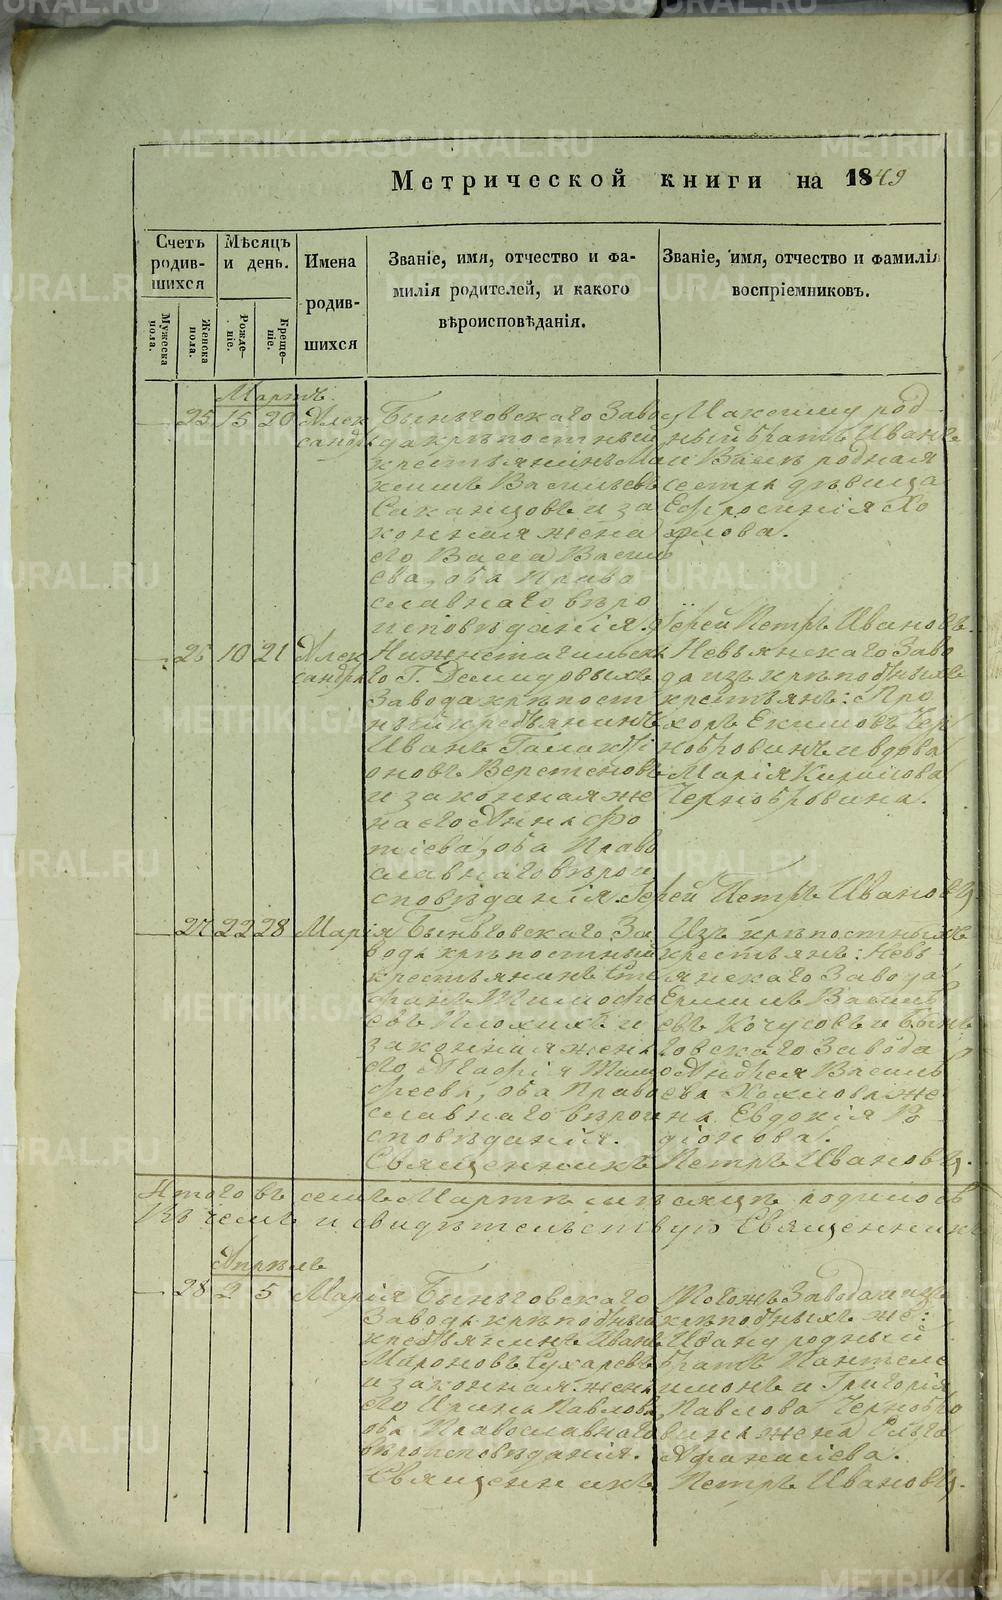 Метрической книги на 1849
Счетъ родив-шихся
Мѣсяцъ и день.
Имена родив-шихся
Званіе, имя, отчество и фа-
милія родителей, и какого
вѣроисповѣданія.
Званіе, имя, отчество и фамилія
воспріемниковъ.
Мужеска пола.
Женска пола.
Рожде-ніе.
Креще-ніе.
Мартъ
25 15 20 Алек
сандра
Быньговскаго Заво
да крѣпостный
крестьянинъ Ма
ксимъ Васильевъ
и за
конная жена
его Васса Васил
ева, оба Право
славнаго вѣро
исповѣданія.
Максиму род
ный братъ Иванъ
и Вассѣ родная
сестра дѣвица
Ефросинія Хо
хлова.
Іерей Петръ Ивановъ.
26 10 21 Алек
сандра
Нижнетагильска
го Г. Демидовыхъ
Завода крѣпост
ный крестьянинъ
Иванъ Галакті
оновъ Веретеновъ
и законная же
на его Анна Фо
тіева, оба Право
славнаго вѣрои
сповѣданія.
Невьянскаго Заво
да изъ крѣпостныхъ
крестьянъ: Про
хоръ Екимовъ Чер
нобровинъ и вдова
Марія Кирилова
Чернобровина.
Іерей Петръ Ивановъ.
27 22 28 Марія
Быньговскаго За
вода крѣпостный
крестьянинъ Сте
фанъ Тимофе
евъ Плохихъ и
законная жена
его Агафія Тимо
феева, оба Право
славнаго вѣрои
сповѣданія.
Изъ крѣпостныхъ
крестьянъ: Невь
янскаго Завода
Ермилъ Василь
евъ Кочуговъ и Бынь
говскаго Завода
Андрея Василь
ева Хохлова же
на Евдокія Ро
діонова.
Священникъ Петръ Ивановъ.
Итого въ семъ Мартѣ мѣсяцѣ родилось
Въ чемъ и свидѣтельствую Священникъ
Апрѣль
28 2 5 Марія
Быньговскаго
Завода крѣпостный
крестьянинъ Иванъ
Мироновъ Сухаревъ
и законная жена
его Ирина Павлова,
оба Православнаго
вѣроисповѣданія.
Тогожъ Завода изъ
крѣпостныхъ же:
Ивану родный
братъ Пантеле
имонъ и Григорія
Павлова Чернобро
вина жена Ольга
Афанасіева.
Священникъ Петръ Ивановъ.
METRIKI.GASO-URAL.RU